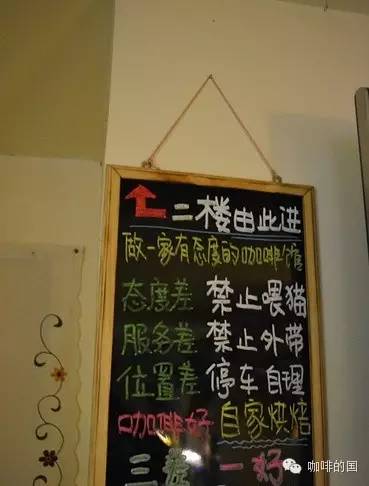 二楼由此进
做一家有态度的咖啡馆
态度差 禁止喂猫
服务差 禁止外带
位置差 停车自理
咖啡好 自家烘焙
三差 一好
咖啡的国